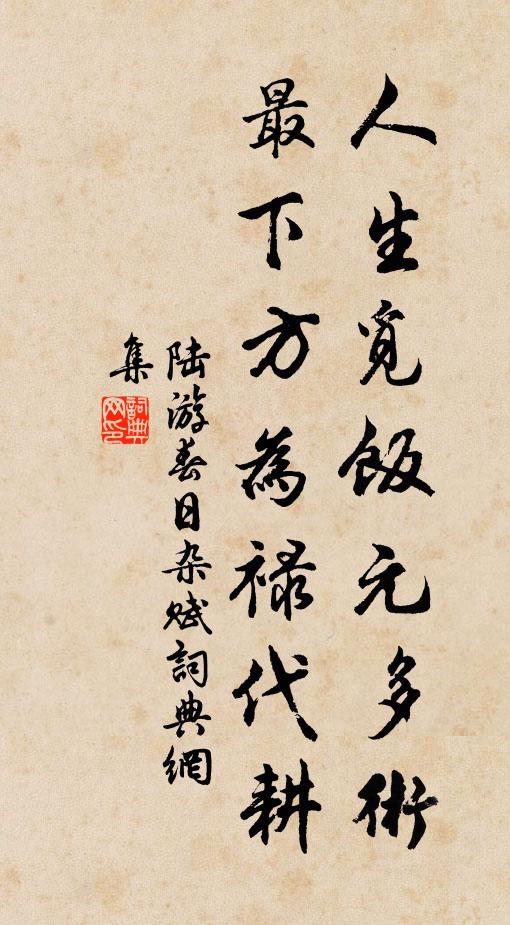 人生覓飯元多術
最下方為禄代耕
陆游春日杂赋詞典網
集
詞典
网印